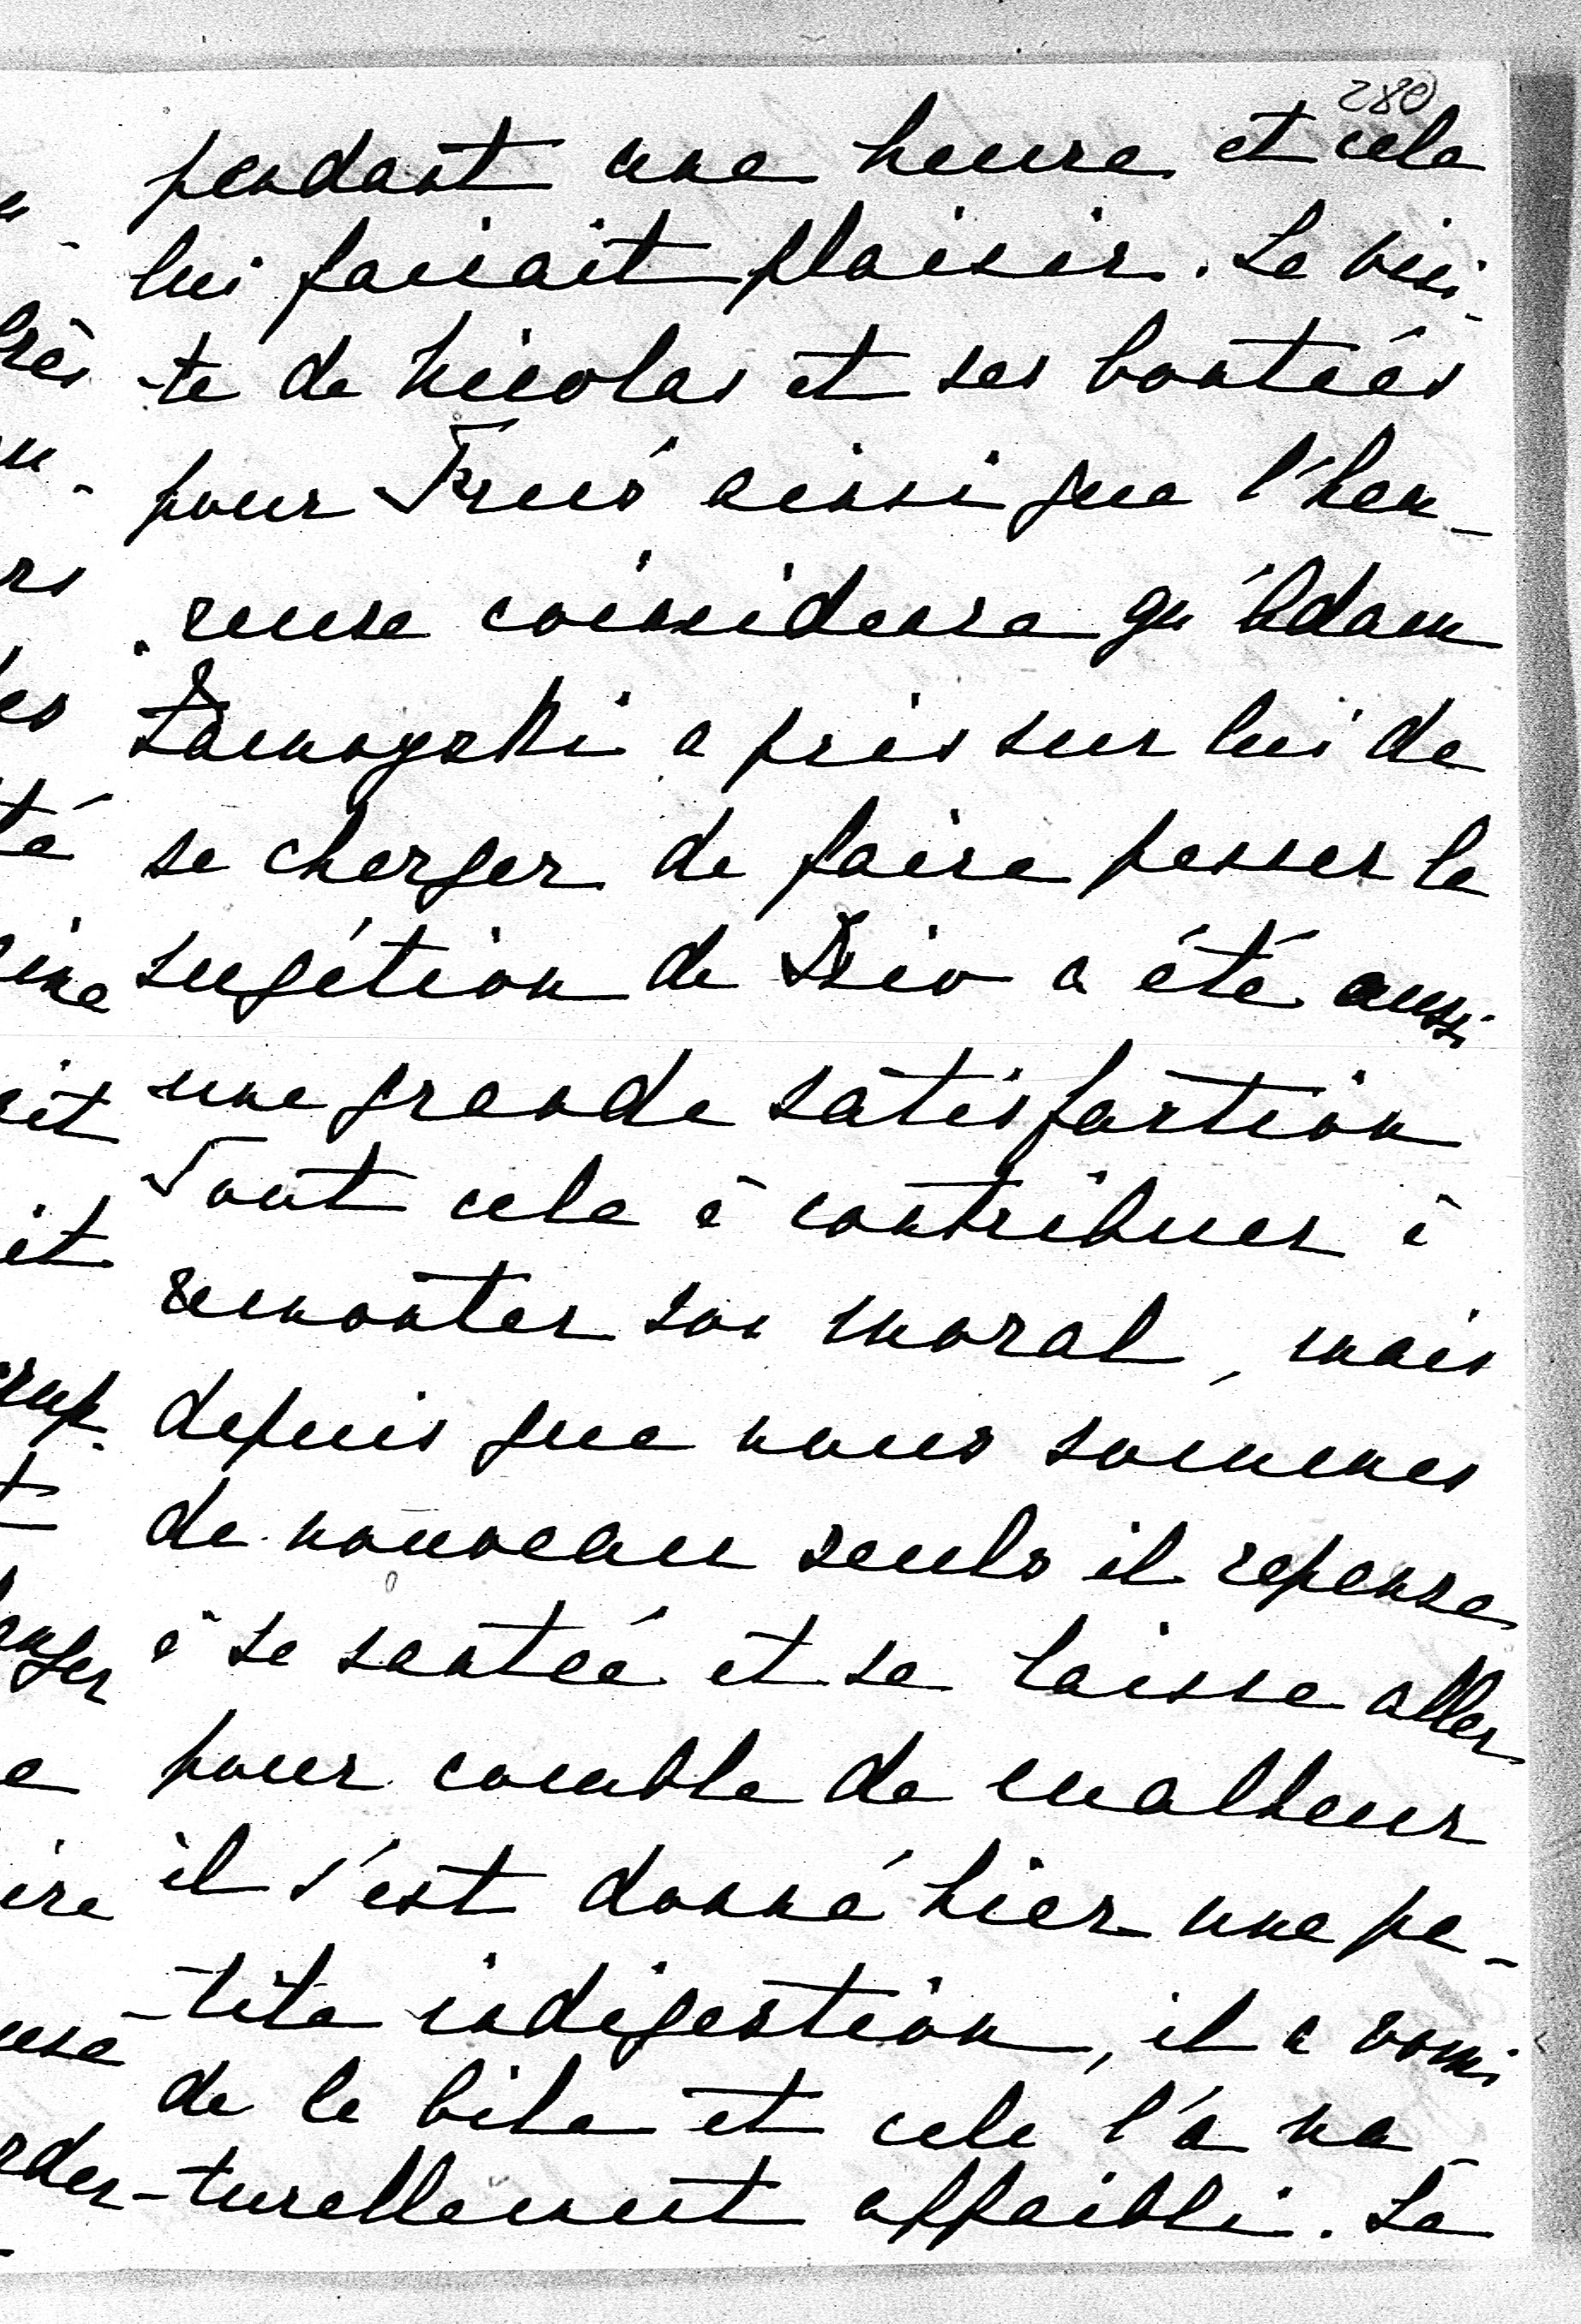 280
pendant une heure et cela
lui faisait plaisir. La visi-
-te de Nicolas et ses bontées
pour ainsi que l'heu-
reuse coinsidense qu'Adam
Zamoyski a pris sur lui de
se charger de faire passer la
sugétion de a été aussi
une grande satisfaction
Tout cela à contribuer à
remonter son moral, mais
depuis que nous sommes
de nouveau seuls il repense
à sa santée et se laisse aller
pour comble de malheur
il s'est donné hier une pe-
-tite indigestion, il a vomi
de la bile et cela l'a na-
-turellement affaibli. La